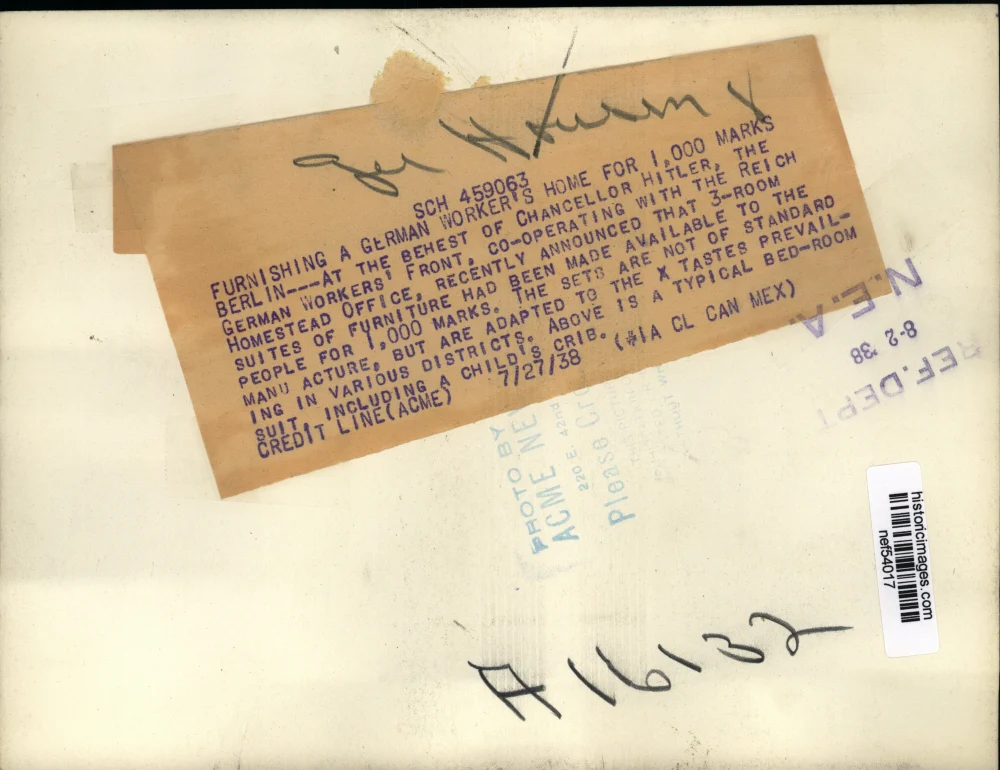 SCH 459063
FURNISHING A GERMAN WORKER'S HOME FOR 1,000 MARKS
BERLIN---AT THE BEHEST OF CHANCELLOR HITLER, THE
GERMAN WORKERS' FRONT, CO-OPERATING WITH THE REICH
HOMESTEAD OFFICE, RECENTLY ANNOUNCED THAT 3-ROOM
SUITES OF FURNITURE HAD BEEN MADE AVAILABLE TO THE
PEOPLE FOR 1,000 MARKS. THE SETS ARE NOT OF STANDARD
MANU ACTURE, BUT ARE ADAPTED TO THE X TASTES PREVAIL-
ING IN VARIOUS DISTRICTS. ABOVE IS A TYPICAL BED-ROOM
SUIT, INCLUDING A CHILD'S CRIB.
CREDIT LINE (ACME) 7/27/38 (*IA CL CAN MEX)
N.E.A.
8-2 '38
REF. DEPT
PHOTO BY
ACME NEW
220 E. 42nd
Please Cre
historicimages.com
nef54017
A 16132